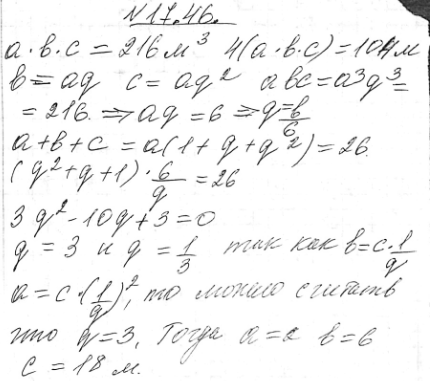 №17.46.
a·b·c = 216 м³ 4(a·b·c)=104 м
b = aq c = aq² abc = a³q³ =
= 216. ⇒ aq = 6 ⇒ q = 6/6
a+b+c = a(1+q+q²) = 26.
(q²+q+1)·6/q = 26
3q²-10q+3=0
q = 3 и q = 1/3 так как b=c·1/q
a = c·(1/q)², то можно считать
что q=3, Тогда a=2 b=6
c = 18 м.